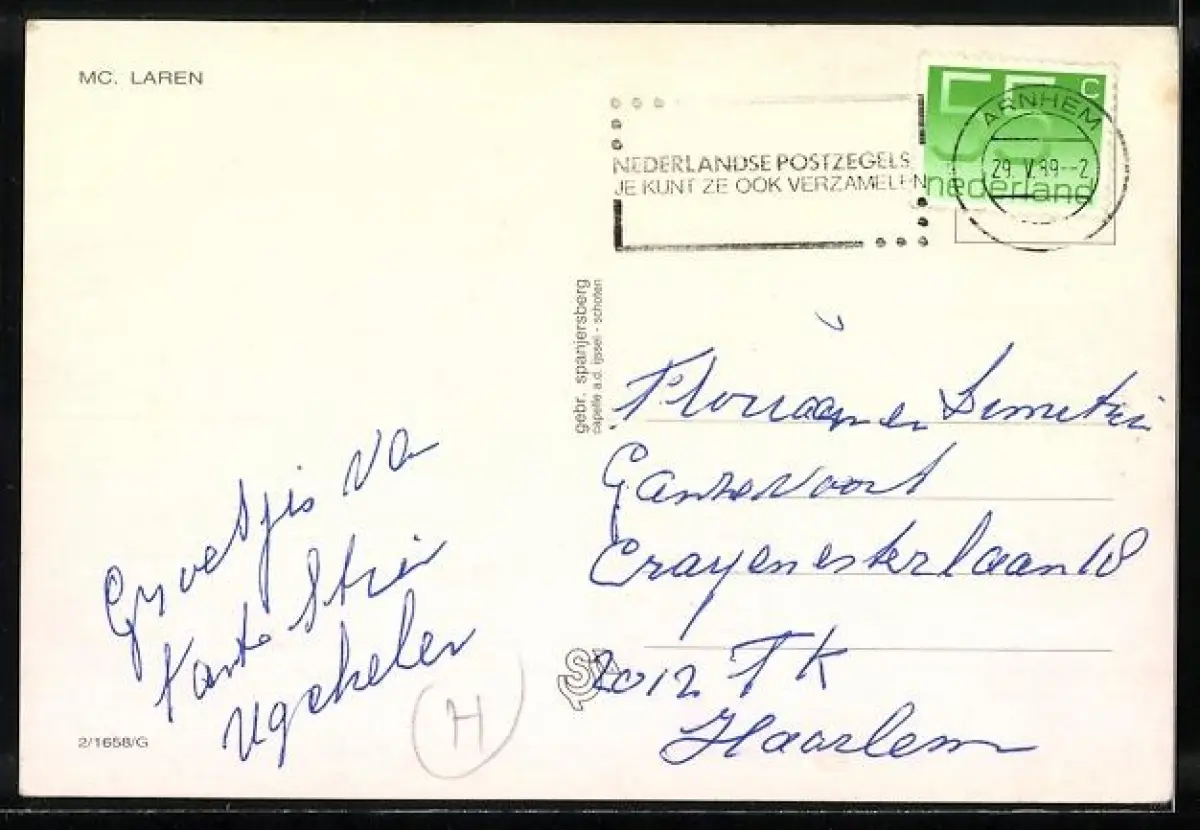 MC. LAREN
55 C
nederland
ARNHEM
29. V.89--2
NEDERLANDSE POSTZEGELS
JE KUNT ZE OOK VERZAMELEN
gebr. spanjersberg
capelle a.d. ijssel - schoten
en
Ganzevoort
Crayenesterlaan 18
2012 TK
Haarlem
Groetjes va
tante
Ugchelen
H
2/1658/G